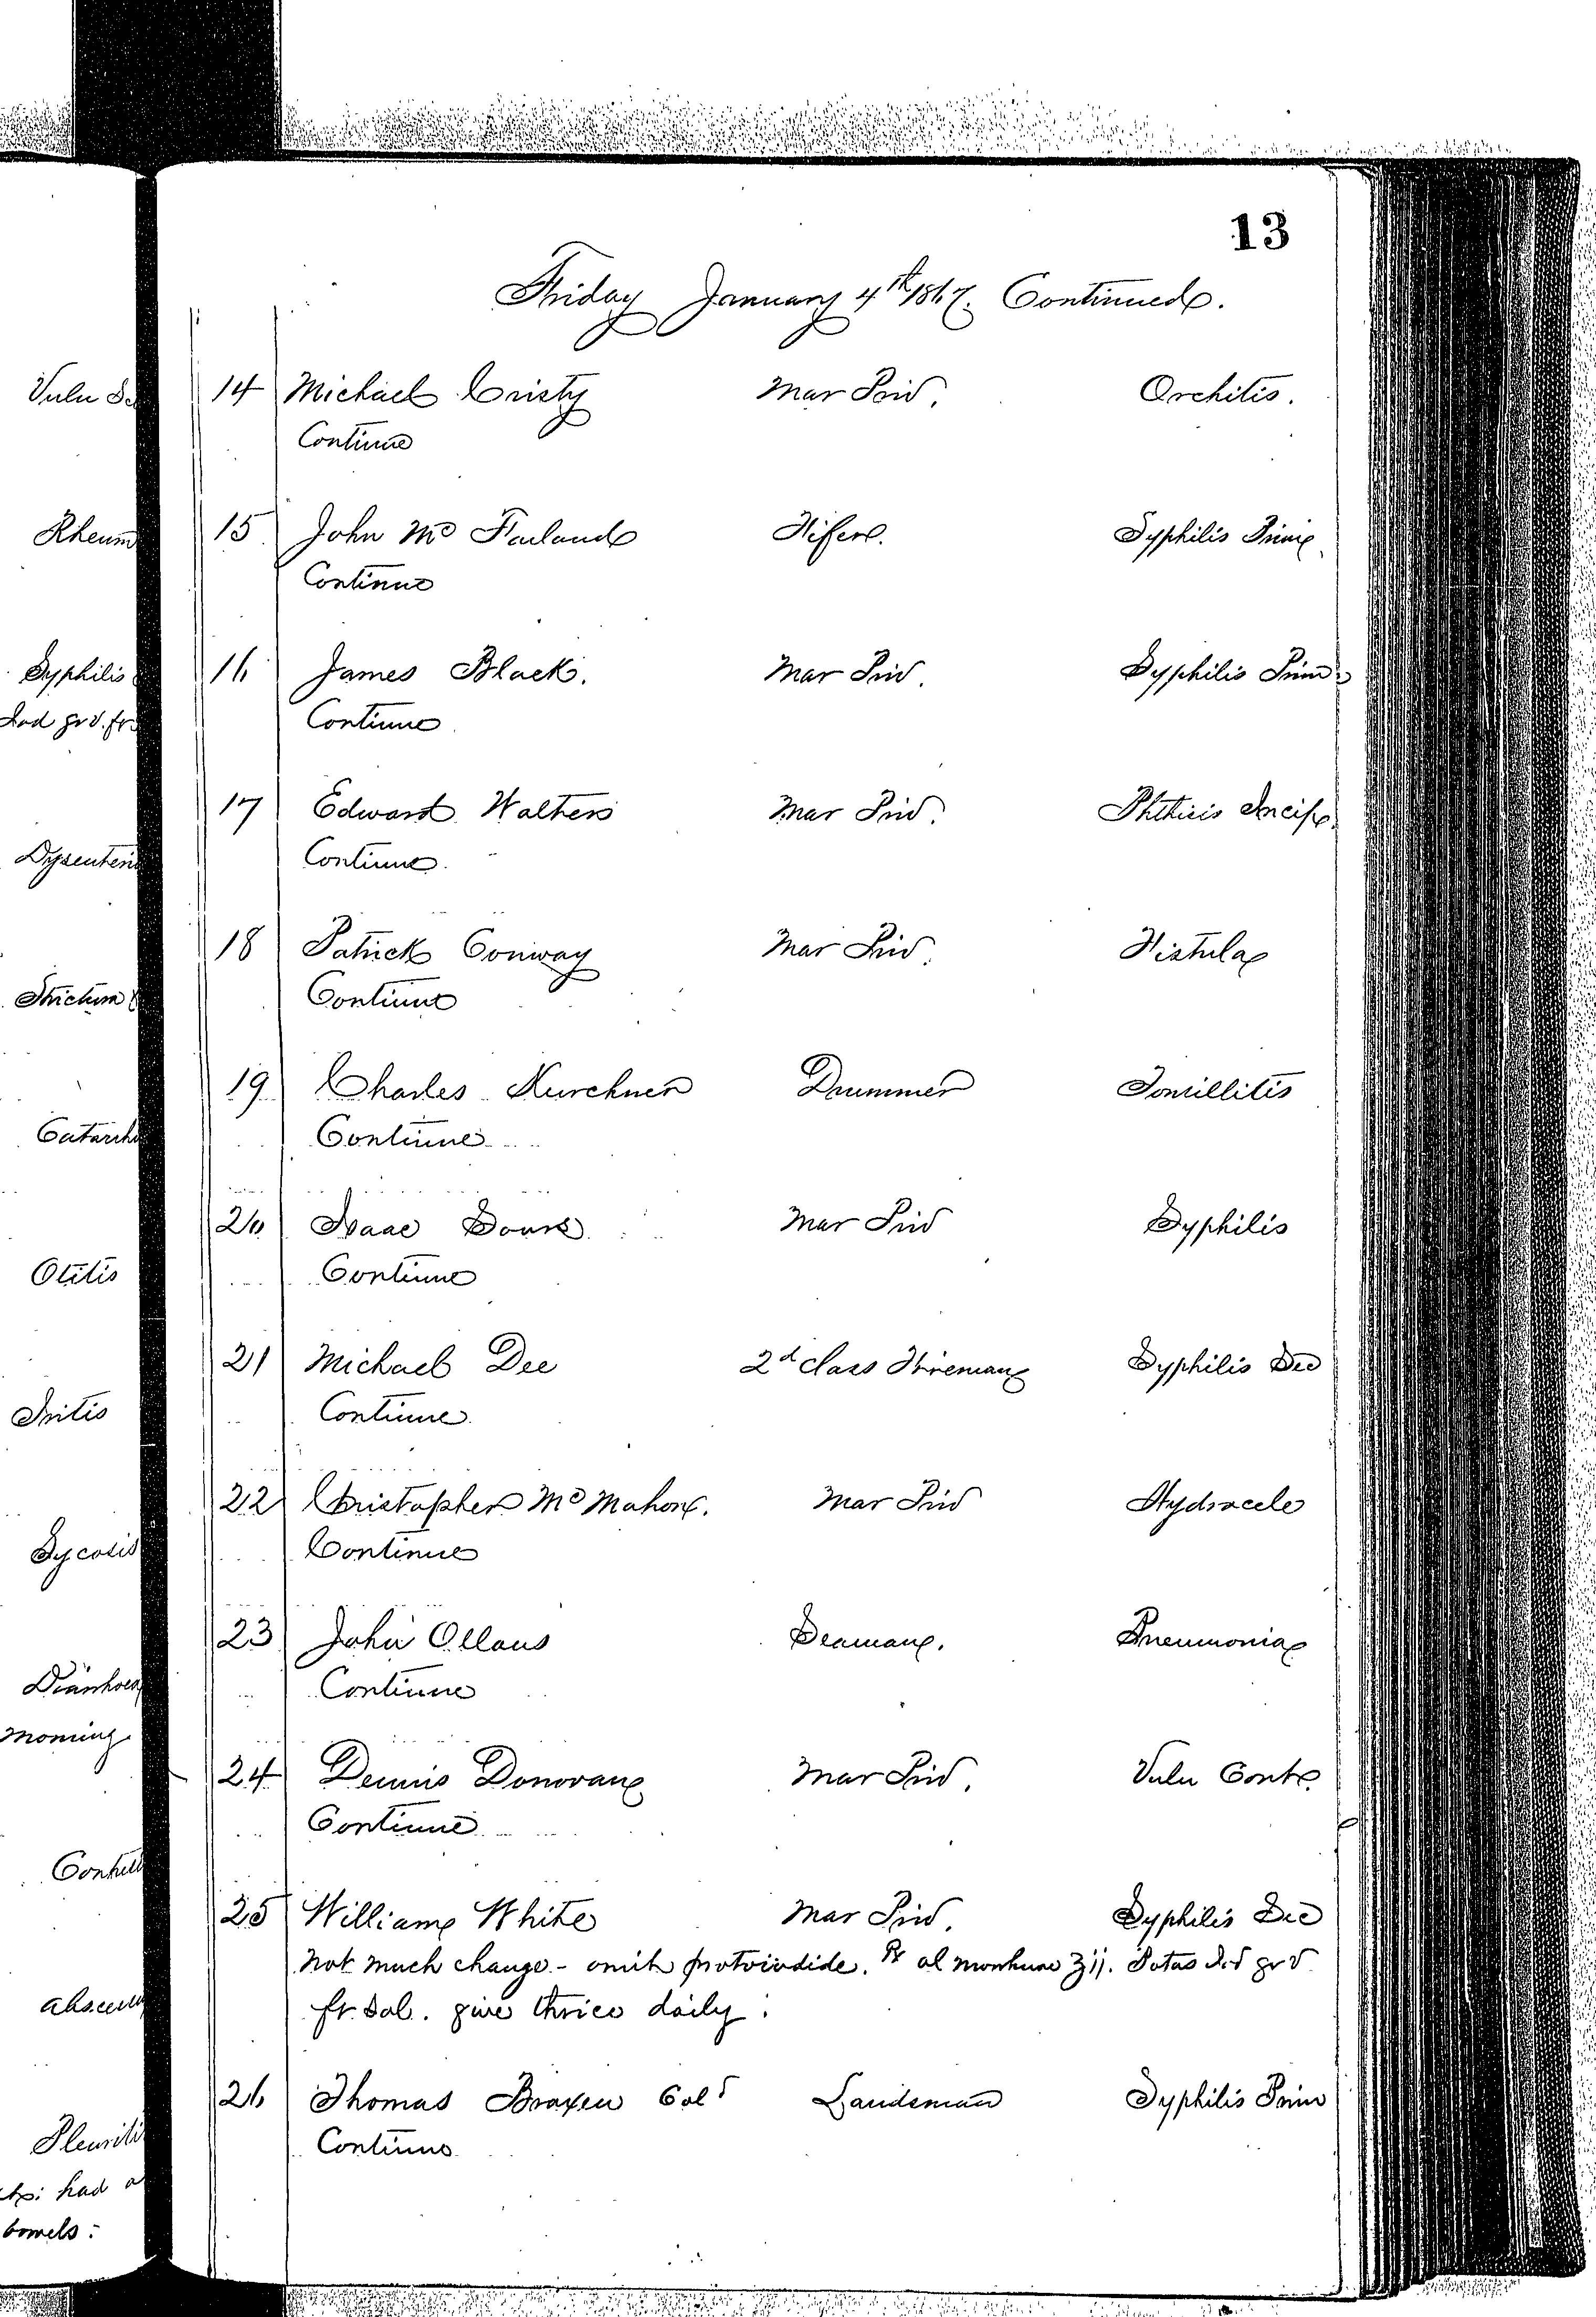 13
Friday January 4th 1867. Continued.
14 Michael Cristy Mar Priv. Orchitis.
Continue
15 John Mc Farland Fifer. Syphilis Prim
Continue
16 James Black. Mar Priv. Syphilis Prim
Continue
17 Edward Walters Mar Priv. Phthisis Incip.
Continue
18 Patrick Conway Mar Priv. Fistula
Continue
19 Charles Kurchner Drummer Tonsillitis
Continue
20 Isaac Mar Priv Syphilis
Continue
21 Michael Dee 2d class Fireman Syphilis Sec
Continue
22 Christopher Mc Mahon. Mar Priv Hydrocele
Continue
23 John Ollaus Seaman. Pneumonia
Continue
24 Dennis Donovan Mar Priv. Vuln Cont.
Continue
25 William White Mar Priv. Syphilis Sec
Not much change - omit protoiodide. Rx ol morrhuae ʒij. Potas Iod gr V
fr. Sol. give thrice daily.
26 Thomas Braxen Cold Landsman Syphilis Prim
Continue
Vuln
Rheum
Syphilis
Iod gr V. fr.
Dysenteri
Catarrh
Otitis
Iritis
Sycosis
Diarrhoea
morning
Pleuriti
had a
bowels.